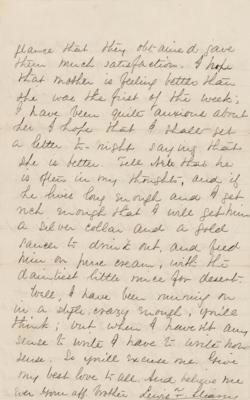 glance that they obtained gave
them much satisfaction. I hope
that mother is feeling better than
she was the first of the week;
I have been quite anxious about
her. I hope that I shall get
a letter to-night saying that
she is better. Tell that he
is often in my thoughts, and if
he lives long enough and I get
rich enough that I will get him
a silver collar and a gold
saucer to drink out, and feed
him on pure cream, with the
daintiest little mice for desert.
Well, I have been running on
in a style crazy enough, you'll
think; but when I havent any
sense to write I have to write non
sense. So you'll excuse me. Give
my best love to all. And believe me
ever your aff. brother Lewis